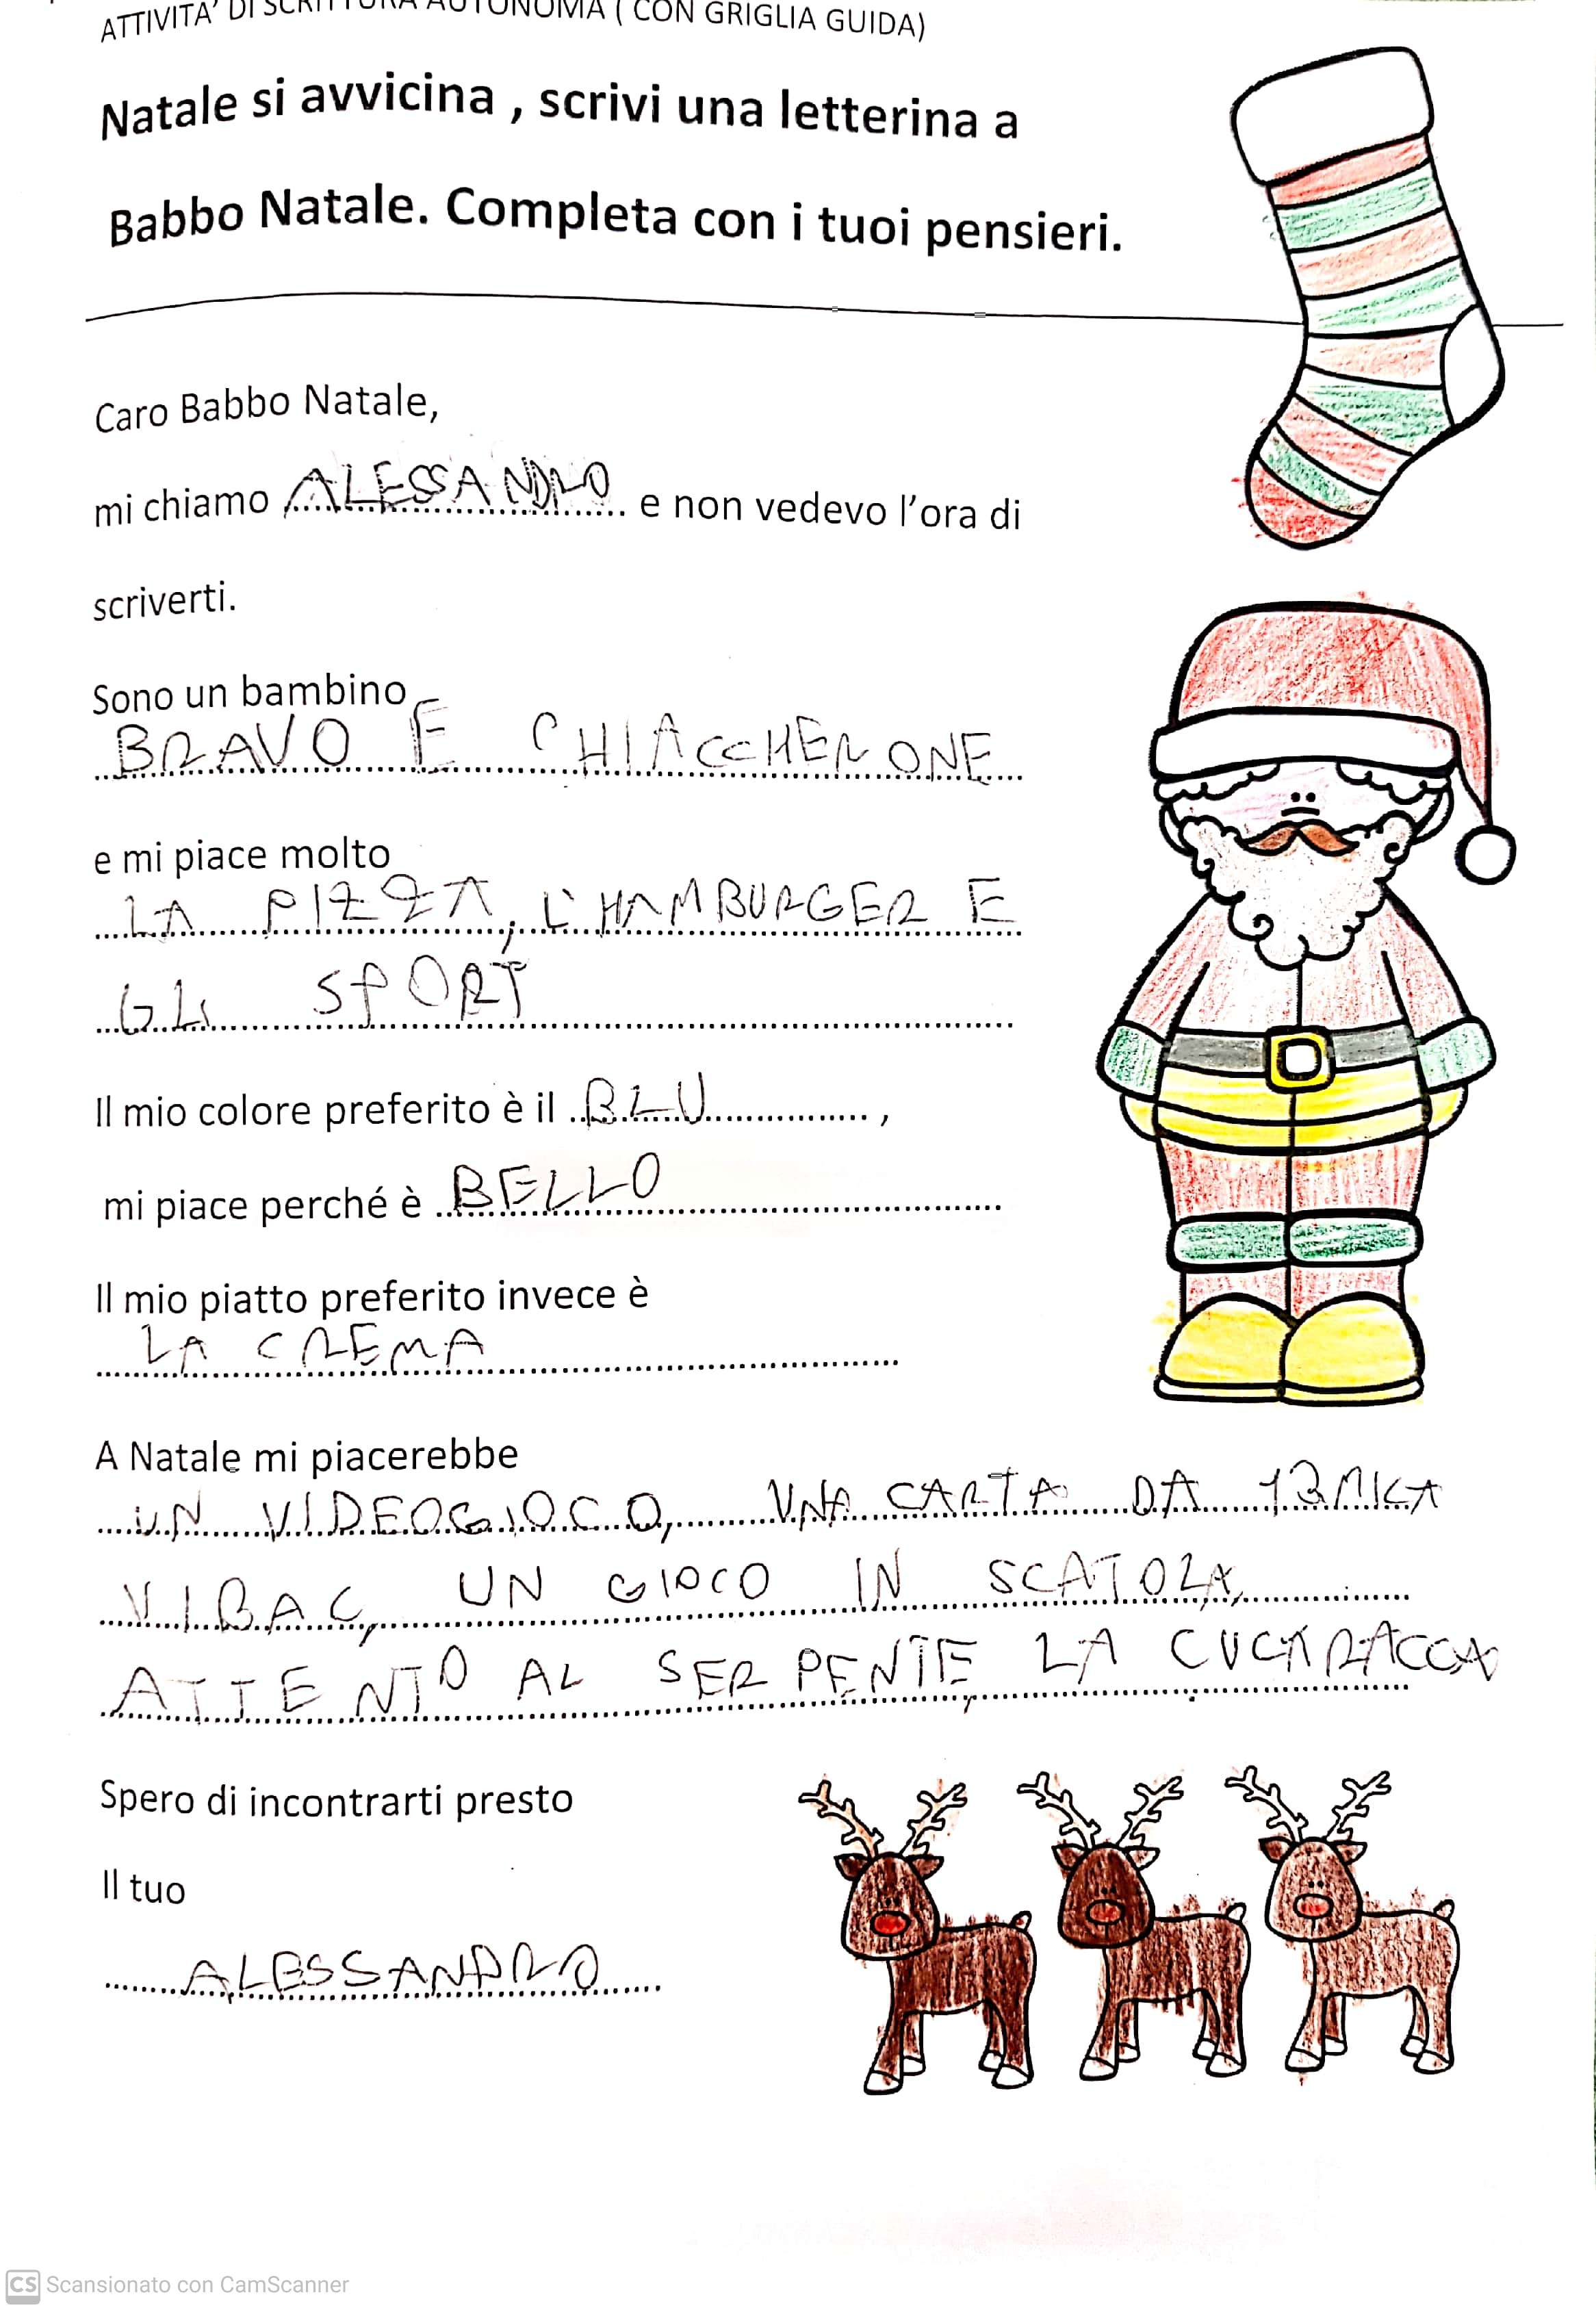 ATTIVITA' DI SCRITTURA AUTONOMA ( CON GRIGLIA GUIDA)
Natale si avvicina , scrivi una letterina a
Babbo Natale. Completa con i tuoi pensieri.
Caro Babbo Natale,
mi chiamo ALESSANDRO e non vedevo l'ora di
scriverti.
Sono un bambino
BRAVO E CHIACCHERONE
e mi piace molto
LA PIZZA, L'HAMBURGER E
GLI SPORT
Il mio colore preferito è il BLU ,
mi piace perché è BELLO
Il mio piatto preferito invece è
LA CREMA
A Natale mi piacerebbe
UN VIDEOGIOCO, UNA CARTA DA
VIBAC, UN GIOCO IN SCATOLA,
ATTENTO AL SERPENTE, LA CUCARACCA
Spero di incontrarti presto
Il tuo
ALESSANDRO
CS Scansionato con CamScanner